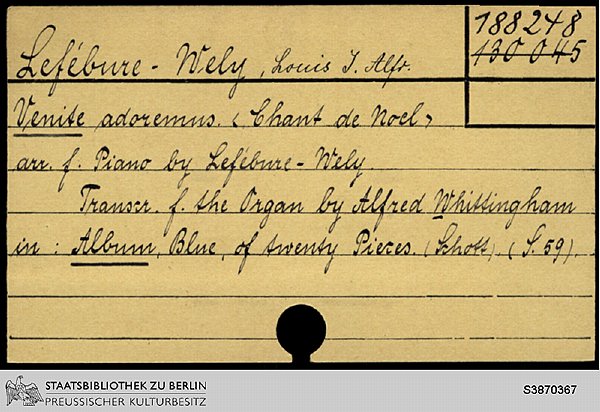 188248
130 045
Lefébure-Wely, Louis J. Alfr.
Venite adoremus. <Chant de Noel>
arr. f. Piano by Lefébure-Wely.
Transcr. f. the Organ by Alfred Whittingham
in: Album, Blue, of twenty Pieces. (Schott). (S. 59).
STAATSBIBLIOTHEK ZU BERLIN
PREUSSISCHER KULTURBESITZ
S3870367